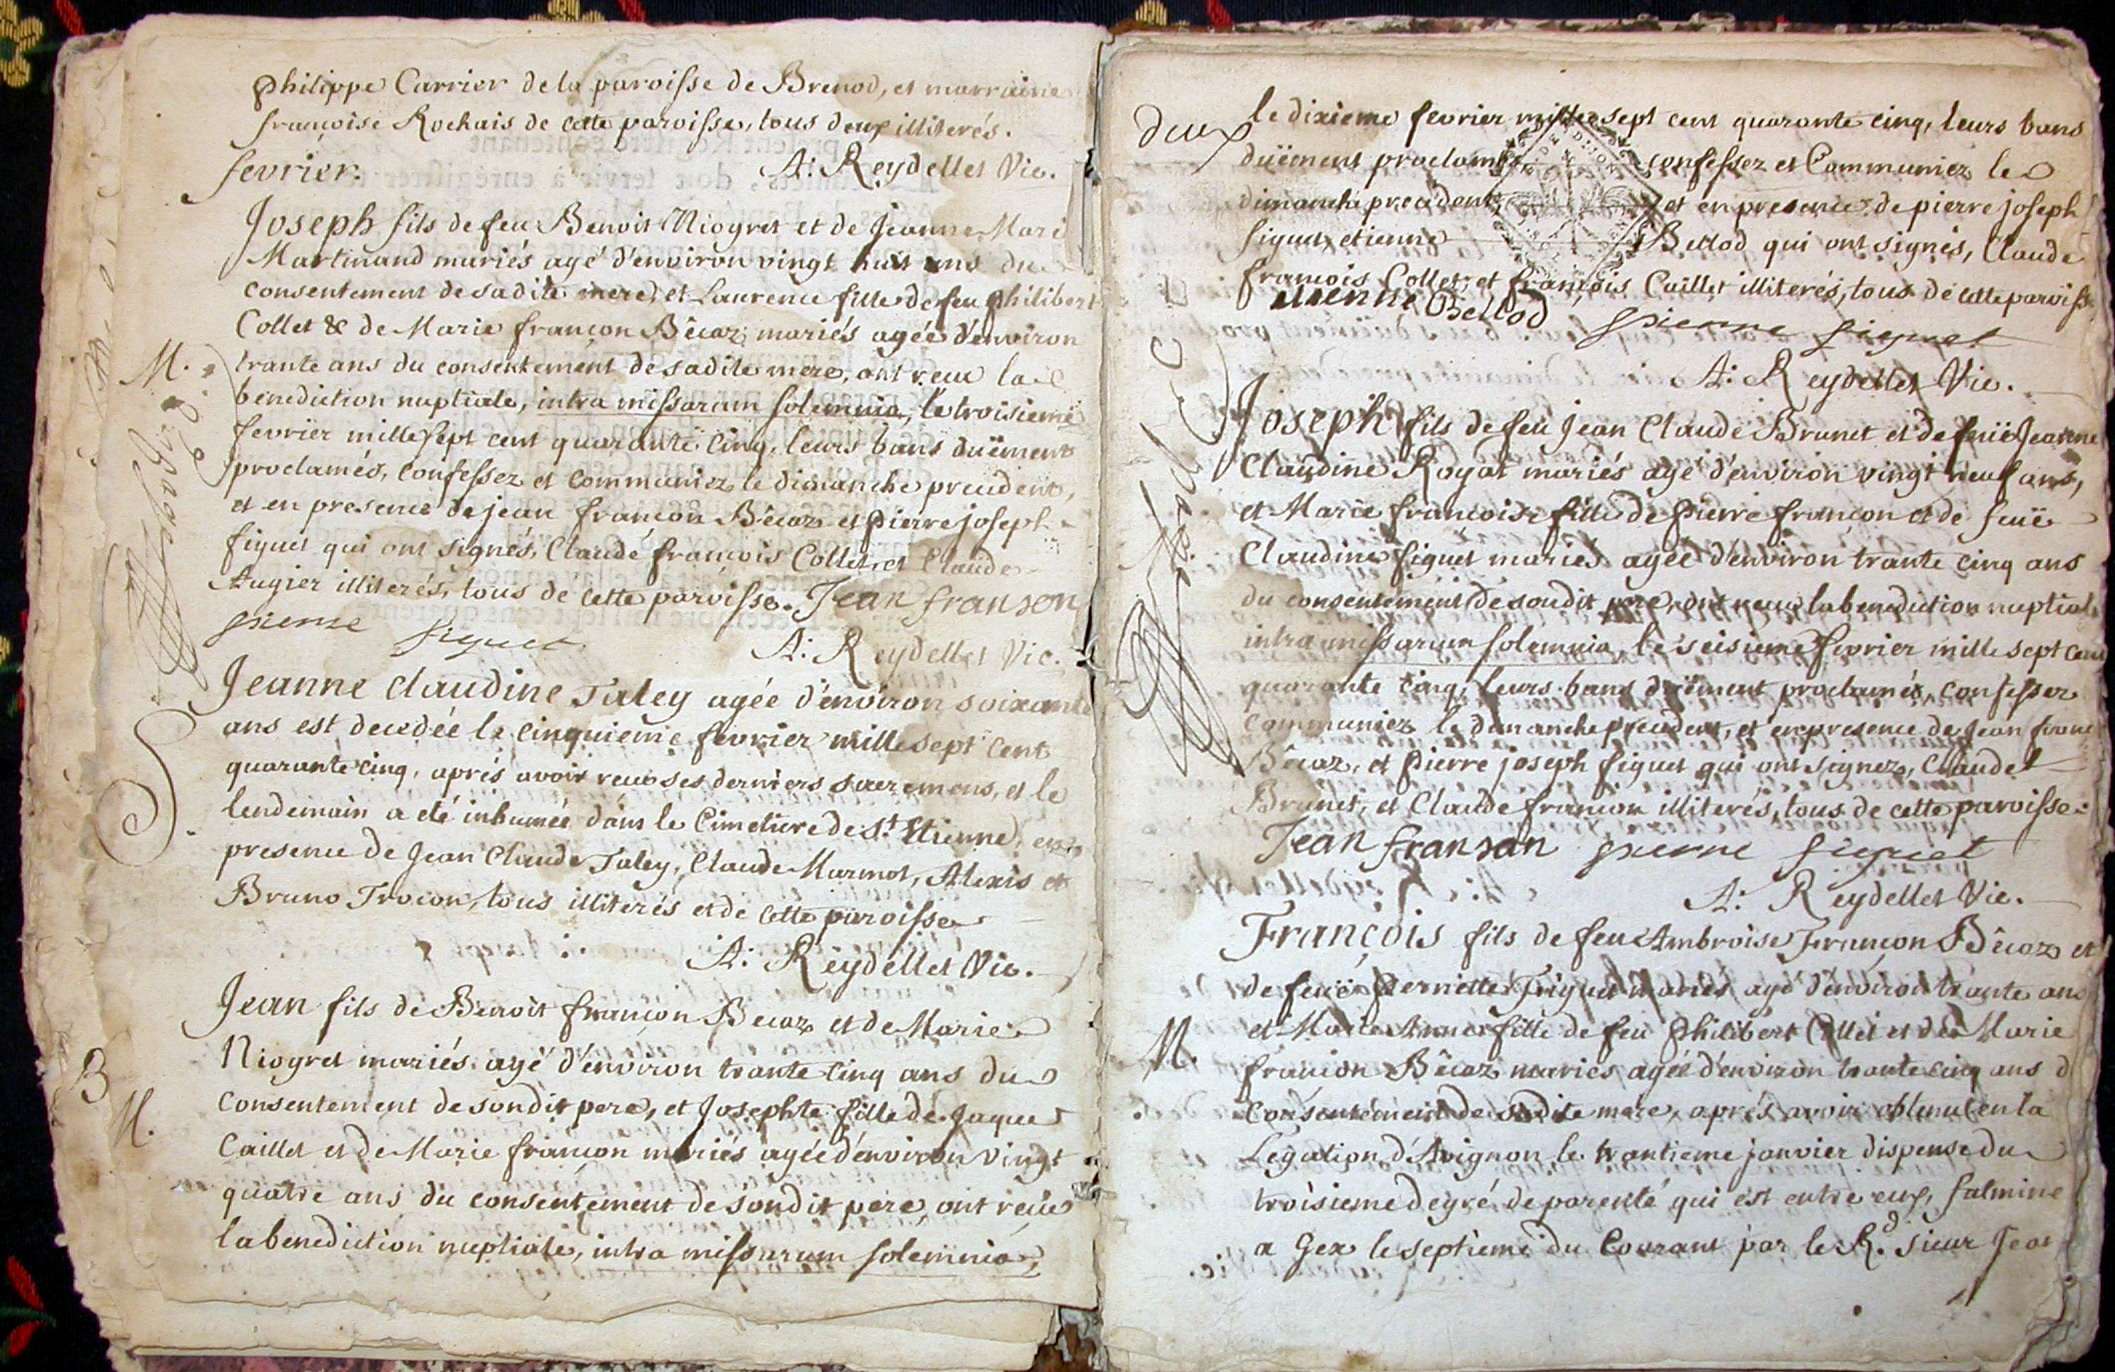 philippe Carrier de la paroisse de Brenod, et marraine
françoise Rochais de cette paroisse, tous deux illiterés.
fevrier. A: Reydellet Vic.
Joseph fils de feu Benoit Niogret et de Jeanne Mari
Martinand mariés agé d'environ vingt huit ans du
consentement de sadite mere, et Laurence fille de feu philibert
Collet & de Marie françon Bêcaz mariés agée d'environ
M. trante ans du consentement de sadite mere, ont receu la
benediction nuptiale, intra missarum solemnia, le troisieme
fevrier mille sept cent quarante cinq, leurs bans duëment
proclamés, confessez et communiez le dimanche precedent,
et en presence de jean françon Bêcaz et pierre joseph
figuet qui ont signés, Claude françois Collet, et Claude
Augier illiterés, tous de cette paroisse. Jean franson
pierre figuet A: Reydellet Vic.
Jeanne Claudine Taley agée d'environ soixante
ans est decedée le cinquieme fevrier mille sept cent
quarante cinq, aprés avoir receu ses derniers sacremens, et le
S. lendemain a eté inhumée dans le Cimetiere de St. Etienne, en
presence de Jean Claude Taley, Claude Marmot, Alexis et
Bruno Trocon, tous illiterés et de cette paroisse
A: Reydellet Vic.
Jean fils de Benoit françon Becaz et de Marie
Niogret mariés agé d'environ trante cinq ans du
B M. consentement de sondit pere, et Josephte fille de Jaque
Caillet et de Marie françon mariés agée d'environ vingt
quatre ans du consentement de sondit pere, ont receüe
la benediction nuptiale, intra missarum solemnia,
deux
le dixieme fevrier mille sept cent quarante cinq, leurs bans
duëment proclamés, confessez et Communiez le
dimanche precedent, et en presence de pierre joseph
figuet, etienne Berlod qui ont signés, Claude
françois Collet, et françois Caillet illiterés, tous de cette paroisse
etienne Berlod pierre figuet
A: Reydellet Vic.
Joseph fils de feu Jean Claude Brunet et de feuë Jeanne
Claudine Royat mariés agé d'environ vingt neuf ans,
et Marie françoise fille de pierre françon et de feuë
Claudine figuet mariés agée d'environ trante cinq ans
du consentement de soudit pere, ont receu la benediction nuptiale
intra missarum solemnia, le seisieme fevrier mille sept cent
quarante cinq, leurs bans duëment proclamés, confessez
communiez le dimanche precedent, et en presence de Jean franç
Bêcaz, et pierre joseph figuet qui ont signez, Claude
Brunet, et Claude françon illiterés, tous de cette paroisse
Jean franson pierre figuet
A: Reydellet Vic.
François fils de feu Ambroise Françon Bêcaz et
de feuë Pernette Friguet mariés agé d'environ trante ans
M. et Marie Anne fille de feu philibert Collet et de Marie
françon Bêcaz mariés agée d'environ trante cinq ans d
consentement de sadite mere, aprés avoir obtenu en la
Legation d'Avignon le trantieme janvier dispense du
troisieme degré de parenté qui est entre eux, fulminé
a Gex le septieme du Courant par le Rd. sieur Jean